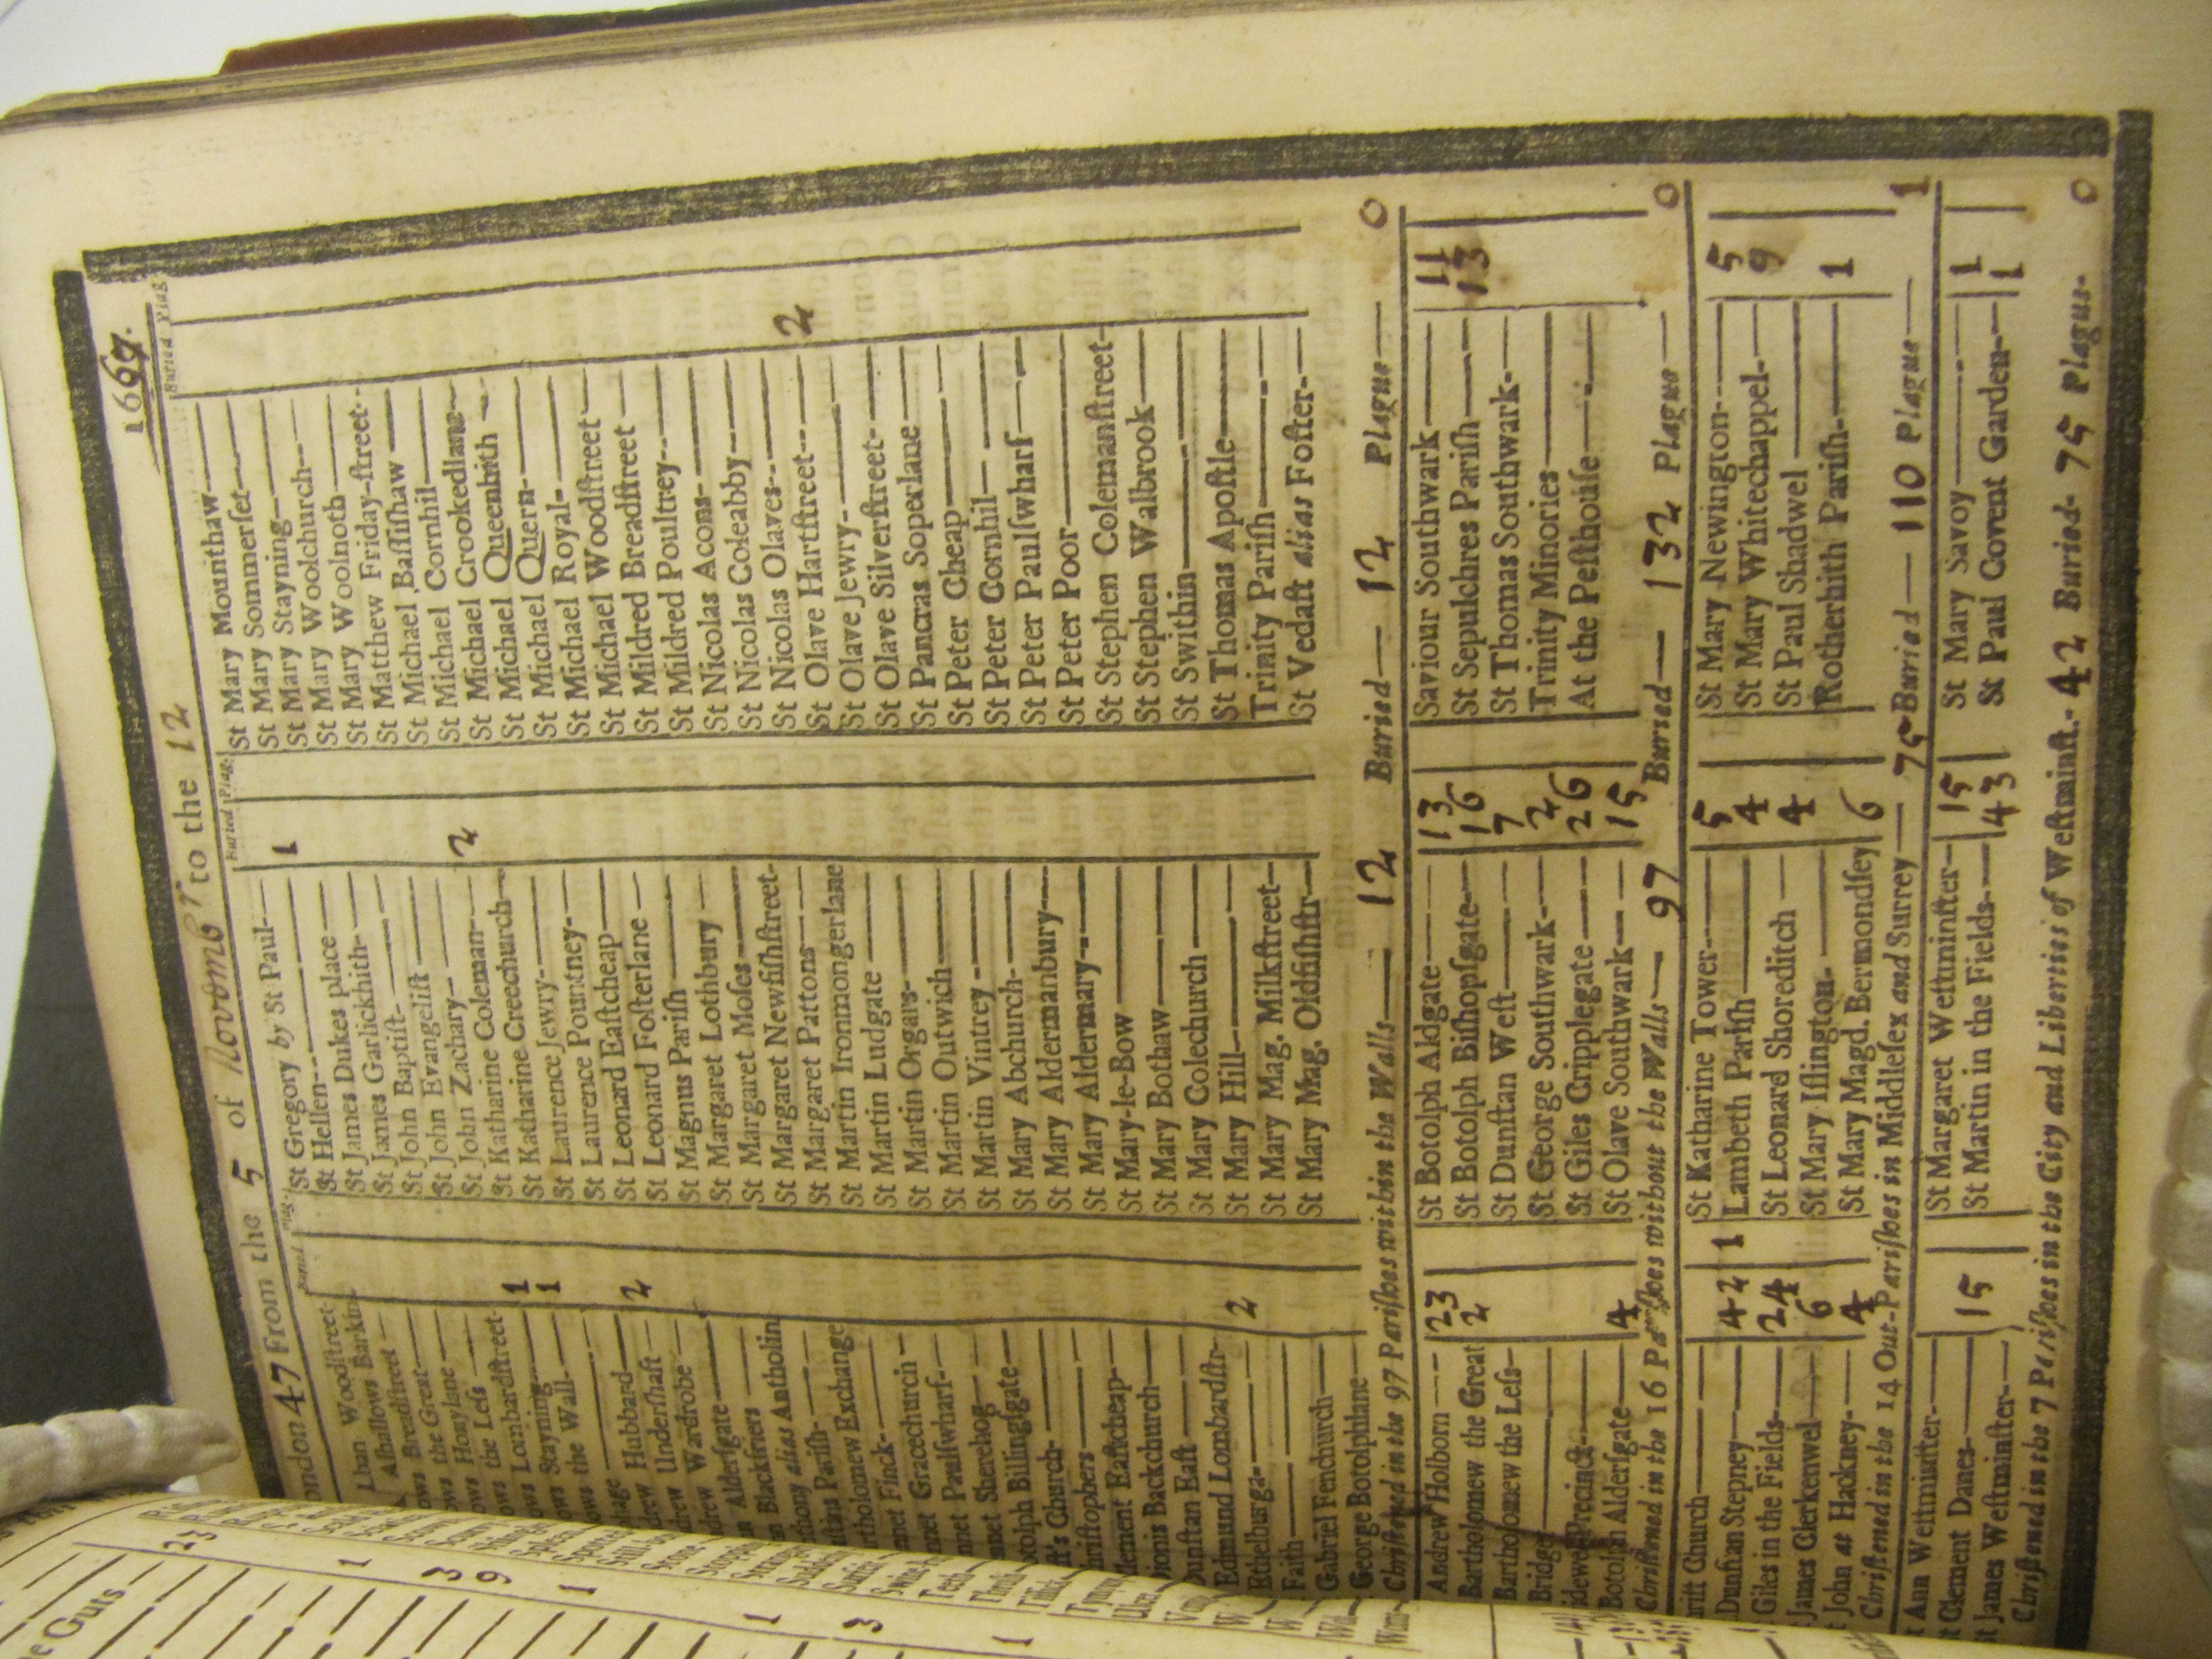 ondon 47 From the 5 of Novembr to the 12 1667.
Buried Plag.
Buried Plag.
Buried Plag
Woodstreet
Alhallows Barkin
Breadstreet
ows the Great
ows Honylane
ows the Less
ows Lombardstreet 1
ows Stayning 1
ows the Wall
drew Hubbard 2
drew Undershaft
drew Wardrobe
Aldersgate
Blackfriers
thony alias Antholin
stins Parish
artholomew Exchange
net Finck
net Gracechurch
net Paulswharf
Sherehog
otolph Billingsgate
Church
hristophers
lement Eastcheap
ionis Backchurch
Dunstan East
Edmund Lombardstr
Ethelburga 2
Faith
Gabriel Fenchurch
George Botolphlane
St Gregory by St Paul
St Hellen 1
St James Dukes place
St James Garlickhith
St John Baptist
St John Evangelist
St John Zachary
St Katharine Coleman 2
St Katharine Creechurch
St Laurence Jewry
St Laurence Pountney
St Leonard Eastcheap
St Leonard Fosterlane
St Magnus Parish
St Margaret Lothbury
St Margaret Moses
St Margaret Newfishstreet
St Margaret Pattons
St Martin Ironmongerlane
St Martin Ludgate
St Martin Orgars
St Martin Outwich
St Martin Vintrey
St Mary Abchurch
St Mary Aldermanbury
St Mary Aldermary
St Mary-le-Bow
St Mary Bothaw
St Mary Colechurch
St Mary Hill
St Mary Mag. Milkstreet
St Mary Mag. Oldfishstr
St Mary Mounthaw
St Mary Sommerset
St Mary Stayning
St Mary Woolchurch
St Mary Woolnoth
St Matthew Friday-street
St Michael Bassishaw
St Michael Cornhil
St Michael Crookedlane
St Michael Queenhith
St Michael Quern
St Michael Royal
St Michael Woodstreet
St Mildred Breadstreet
St Mildred Poultrey
St Nicolas Acons
St Nicolas Coleabby
St Nicolas Olaves
St Olave Hartstreet 2
St Olave Jewry
St Olave Silverstreet
St Pancras Soperlane
St Peter Cheap
St Peter Cornhil
St Peter Paulswharf
St Peter Poor
St Stephen Colemanstreet
St Stephen Walbrook
St Swithin
St Thomas Apostle
Trinity Parish
St Vedast alias Foster
Christned in the 97 Parishes within the Walls 12 Buried 12 Plague 0
Andrew Holborn 23
Bartholomew the Great 2
Bartholomew the Less
Bridge
idewel Precinct
Botolph Aldersgate 4
St Botolph Aldgate 13
St Botolph Bishopsgate 16
St Dunstan West 7
St George Southwark 2
St Giles Cripplegate 26
St Olave Southwark 15
Saviour Southwark 11
St Sepulchres Parish 13
St Thomas Southwark
Trinity Minories
At the Pesthouse
Christned in the 16 Parishes without the Walls 97 Buried 132 Plague 0
rist Church
Dunstan Stepney 42 1
Giles in the Fields 24
James Clerkenwel 6
John at Hackney 4
St Katharine Tower 5
Lambeth Parish 4
St Leonard Shoreditch 4
St Mary Islington
St Mary Magd. Bermondsey 6
St Mary Newington 5
St Mary Whitechappel 9
St Paul Shadwel
Rotherhith Parish 1
Christened in the 14 Out-Parishes in Middlesex and Surrey 75 Buried 110 Plague 1
St Ann Westminster
St Clement Danes 15
St James Westminster
St Margaret Westminster 15
St Martin in the Fields 43
St Mary Savoy 1
St Paul Covent Garden 1
Christned in the 7 Parishes in the City and Liberties of Westminst. 42 Buried 75 Plague 0
Guts
23
1
3
9
1
1
3
1